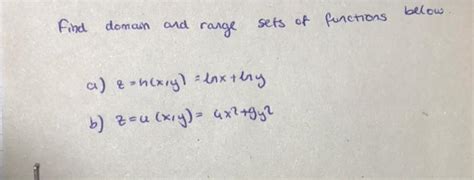 Find domain and range sets of functions below.
a) z = h(x,y) = lnx + lny
b) z = u(x,y) = 4x² + 9y²